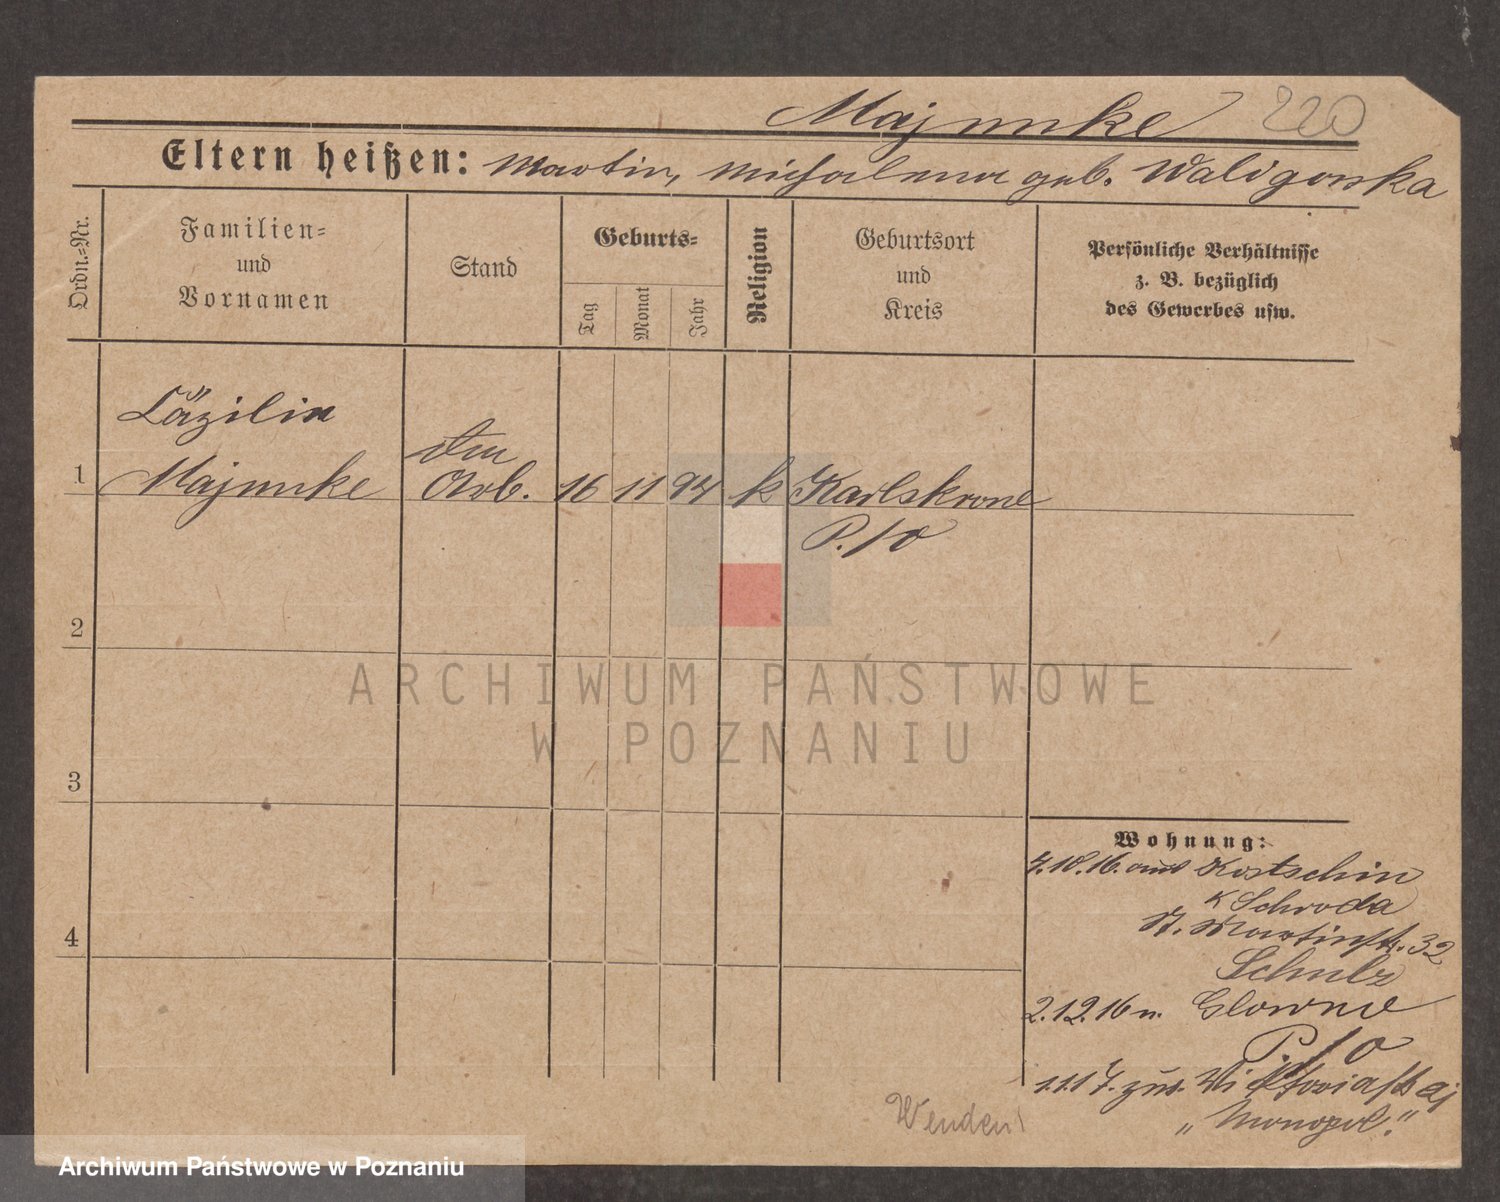 Majunke 220
Eltern heißen: Martin, Michalina geb. Waligorska
Ordn.=Nr.
Familien=
und
Vornamen
Stand
Geburts=
Tag
Monat
Jahr
Religion
Geburtsort
und
Kreis
Persönliche Verhältnisse
z. B. bezüglich
des Gewerbes usw.
Cäzilia
1 Majunke Arb. 16 11 94 k Karlskrone
P./O
2
3
4
Wohnung:
7.10.16. aus Kostschin
K Schroda
St. Martinstr. 32
Schulz
2.12.16 n. Glowno
P./O
1.1.17. zur. Viktoriastr
"Monopol."
Wenden!
ARCHIWUM PAŃSTWOWE
W POZNANIU
Archiwum Państwowe w Poznaniu